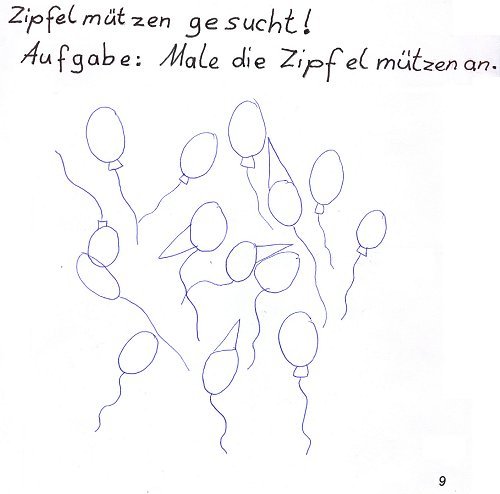 Zipfelmützen gesucht!
Aufgabe: Male die Zipfelmützen an.
9